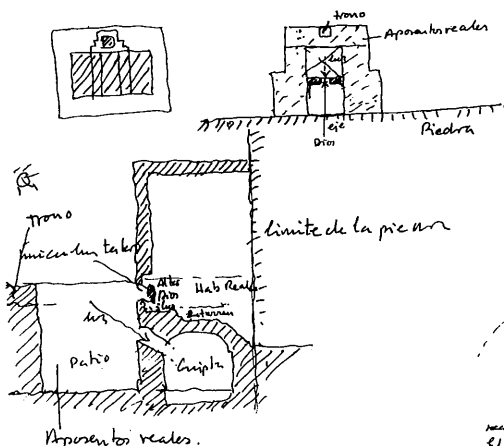 trono
Aposentos reales
luz
eje
Dios
Piedra
trono
limite de la piedra
Altar
Dios
Hab Reales
entierran
luz
Patio
Cripta
Aposentos reales.
el